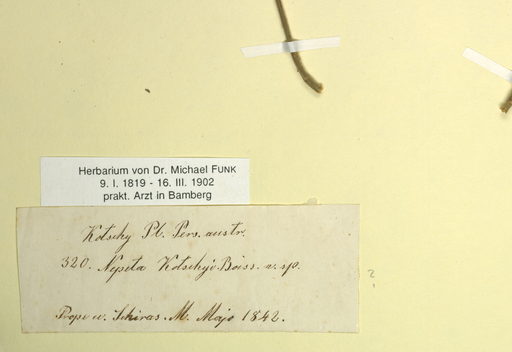 Herbarium von Dr. Michael FUNK
9. I. 1819 - 16. III. 1902
prakt. Arzt in Bamberg
Kotschy Pl. Pers. austr.
320. Nepeta Kotschyi Boiss. n. sp.
Prope u. Schiras. M. Majo 1842.
?